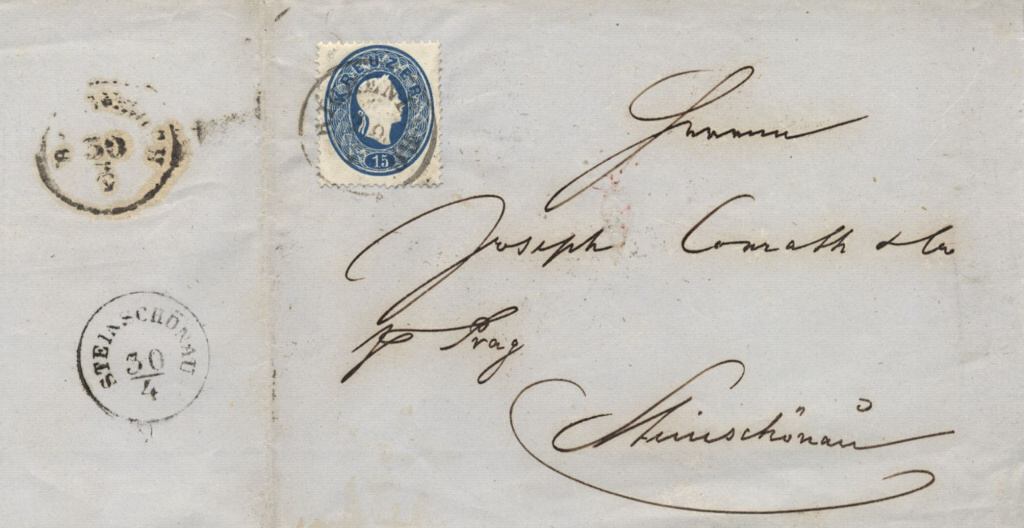 KREUZER
15
30
STEINSCHÖNAU
30
4
Herren
Joseph Conrath & Co
pr Prag
Steinschönau